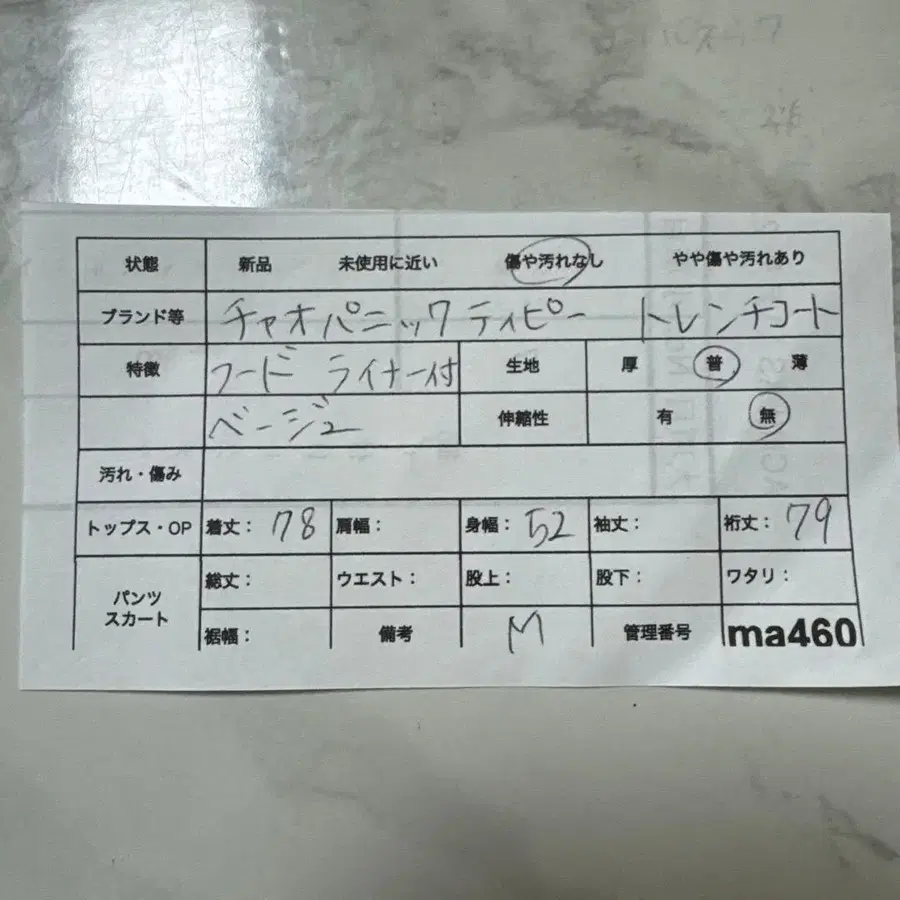 状態 新品 未使用に近い 傷や汚れなし やや傷や汚れあり
ブランド等 チャオパニックティピー トレンチコート
特徴 フード ライナー付 生地 厚 普 薄
ベージュ 伸縮性 有 無
汚れ・傷み
トップス・OP 着丈: 78 肩幅: 身幅: 52 袖丈: 裄丈: 79
パンツ スカート 総丈: ウエスト: 股上: 股下: ワタリ:
裾幅: 備考 M 管理番号 ma460